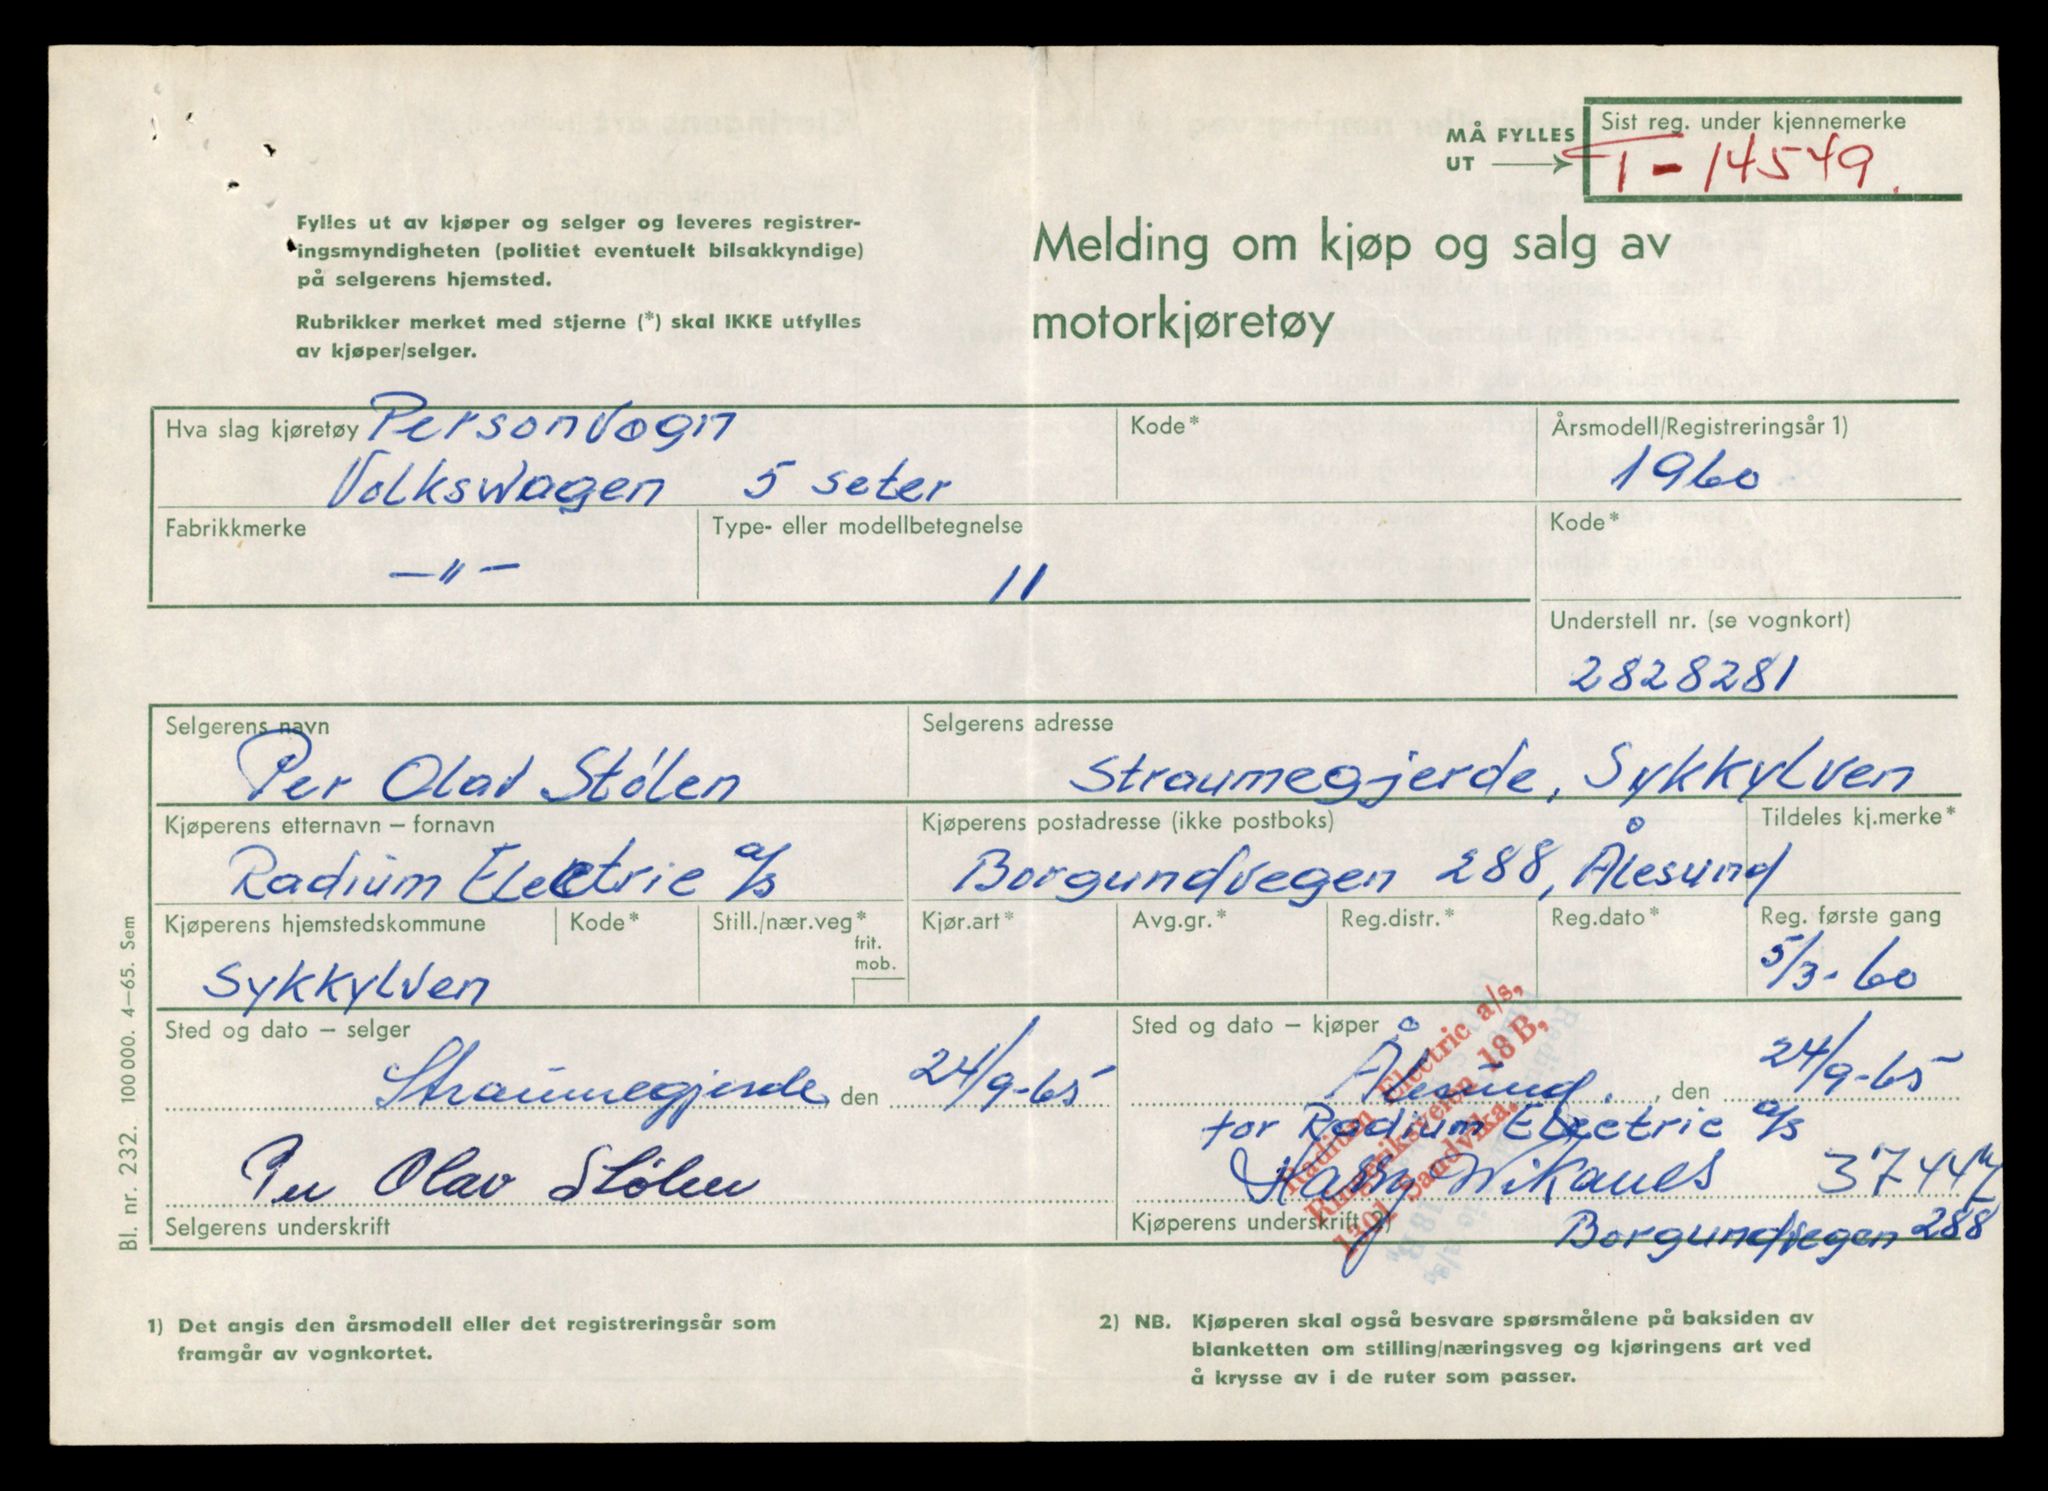 MÅ FYLLES
UT
Sist reg. under kjennemerke
T - 14549.
Fylles ut av kjøper og selger og leveres registrer-
ingsmyndigheten (politiet eventuelt bilsakkyndige)
på selgerens hjemsted.
Rubrikker merket med stjerne (*) skal IKKE utfylles
av kjøper/selger.
Melding om kjøp og salg av
motorkjøretøy
Hva slag kjøretøy Personvogn
Volkswagen 5 seter
Kode*
Årsmodell/Registreringsår 1)
1960
Fabrikkmerke
—"—
Type- eller modellbetegnelse
11
Kode*
Understell nr. (se vognkort)
2828281
Selgerens navn
Per Olav Stølen
Selgerens adresse
Straumegjerde, Sykkylven
Kjøperens etternavn – fornavn
Radium Electric a/s
Kjøperens postadresse (ikke postboks)
Borgundvegen 288, Ålesund
Tildeles kj.merke*
Kjøperens hjemstedskommune
Sykkylven
Kode*
Still./nær.veg*
frit.
mob.
Kjør.art*
Avg.gr.*
Reg.distr.*
Reg.dato*
Reg. første gang
5/3-60
Sted og dato – selger
Straumegjerde, den 24/9-65
Per Olav Stølen
Selgerens underskrift
Sted og dato – kjøper
Ålesund, den 24/9-65
for Radium Electric a/s
37447
Kjøperens underskrift 2)
Borgundvegen 288
Radium Electric a/s,
Ringeriksveien 18 B,
1301 Sandvika.
1) Det angis den årsmodell eller det registreringsår som
framgår av vognkortet.
2) NB. Kjøperen skal også besvare spørsmålene på baksiden av
blanketten om stilling/næringsveg og kjøringens art ved
å krysse av i de ruter som passer.
Bl. nr. 232. 100 000. 4–65. Sem